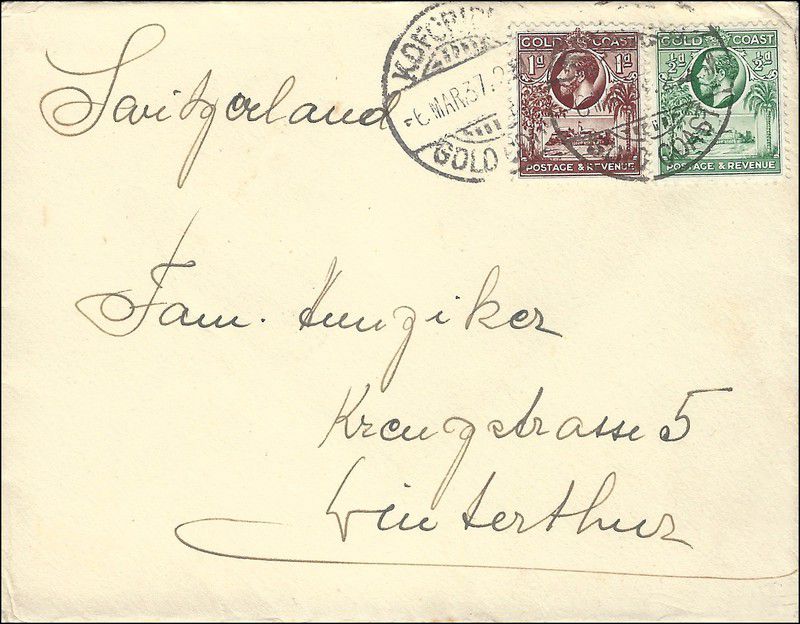 KOFORIDUA
6 MAR 37
GOLD COAST
GOLD COAST
1d 1d
POSTAGE & REVENUE
GOLD COAST
½d ½d
POSTAGE & REVENUE
GOLD COAST
Switzerland
Fam. Hunziker
Kreuzstrasse 5
Winterthur